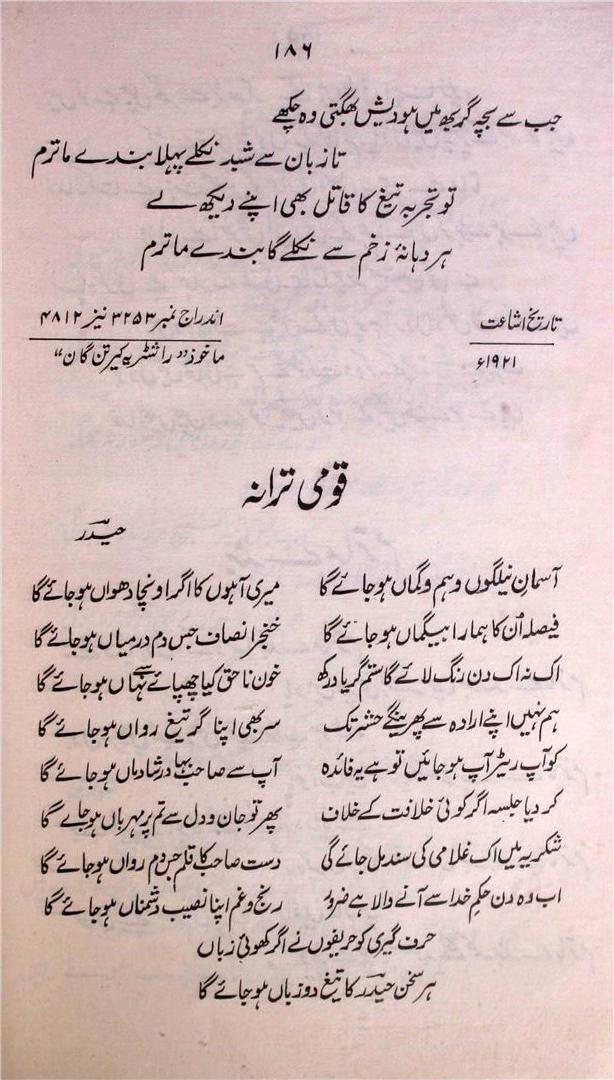 ۱۸۶
جب سے بچہ گربھ میں ہو دیش بھگتی وہ چکھے
تا زبان سے شبد نکلے پہلا بندے ماترم
تو تجربہ تیغ کا قاتل بھی اپنے دیکھ لے
ہر دہانۂ زخم سے نکلے گا بندے ماترم
تاریخ اشاعت
اندراج نمبر ۳۲۵۳ نیز ۴۸۱۲
۱۹۲۱ء
ماخوذ "راشٹریہ کیرتن گان"
قومی ترانہ
حیدر
آسمانِ نیلگوں وہم وگماں ہوجائے گا
میری آہوں کا اگر اونچا دھواں ہوجائے گا
فیصلہ اُن کا ہمارا بیگماں ہوجائے گا
خنجرِ انصاف جس دم درمیاں ہوجائے گا
اک نہ اک دن رنگ لائے گا ستم گر یاد رکھ
خون ناحق کیا چھپائے سے نہاں ہوجائے گا
ہم نہیں اپنے ارادہ سے پھرینگے حشر تک
سر بھی اپنا گر تیغ رواں ہوجائے گا
کوآپریٹر آپ ہوجائیں تو ہے یہ فائدہ
آپ سے صاحب بہادر شادماں ہوجائے گا
کردیا جلسہ اگر کوئی خلافت کے خلاف
پھر تو جان ودل سے تم پر مہرباں ہوجائے گا
شکریہ میں اک غلامی کی سند مل جائے گی
دست صاحب کا قلم جس دم رواں ہوجائے گا
اب وہ دن حکمِ خدا سے آنے والا ہے ضرور
رنج وغم اپنا نصیب دشمناں ہوجائے گا
حرف گیری کو حریفوں نے اگر کھوئی زباں
ہر سخن حیدر کا تیغ دو زباں ہوجائے گا